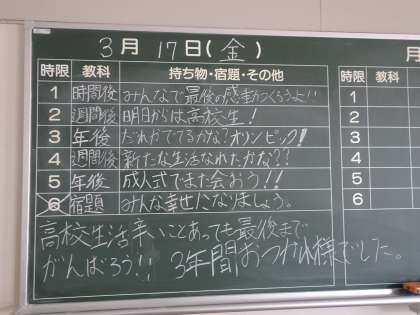 3月17日(金)
月
時限 教科 持ち物・宿題・その他
1 時間後 みんなで最後の感動つくろうよ!!
2 週間後 明日からは高校生!
3 年後 だれかでてるかな?オリンピック!
4 週間後 新たな生活なれたかな??
5 年後 成人式でまた会おう!!
6 宿題 みんな幸せになりましょう。
高校生活辛いことあっても最後まで
がんばろう!! 3年間おつかれ様でした。
時限 教科
1
2
3
4
5
6